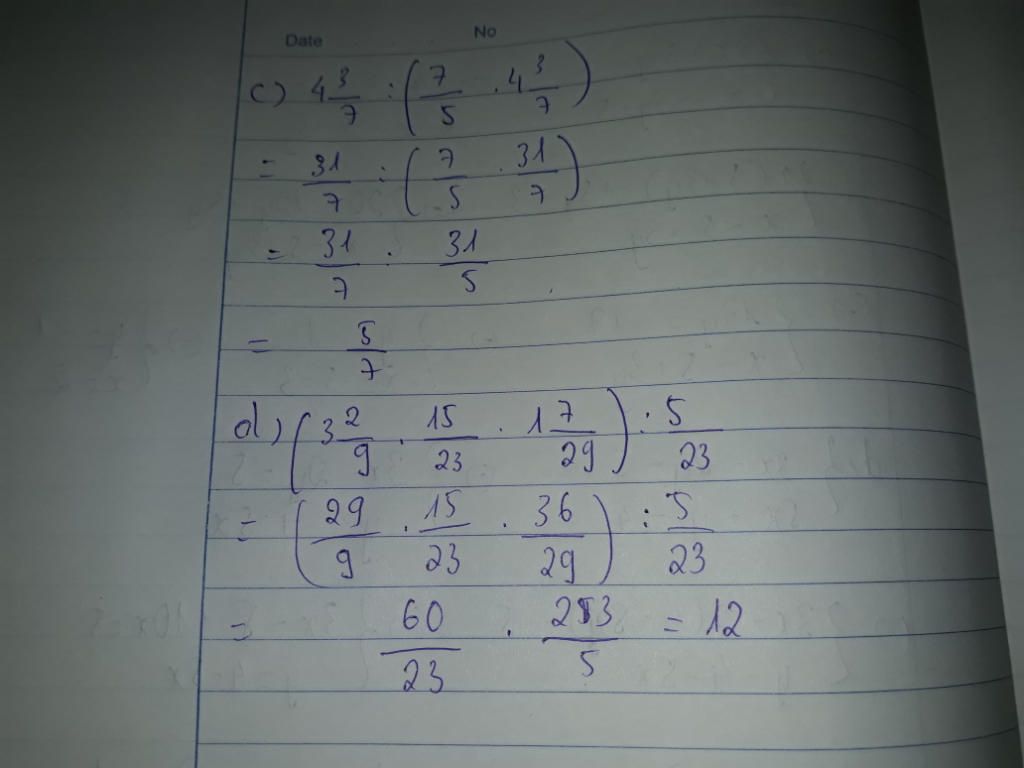 Date No
c) 4 3/7 : (7/5 . 4 3/7)
= 31/7 : (7/5 . 31/7)
= 31/7 : 31/5
= 5/7
d) (3 2/9 . 15/23 . 1 7/29) : 5/23
= (29/9 . 15/23 . 36/29) : 5/23
= 60/23 . 23/5 = 12